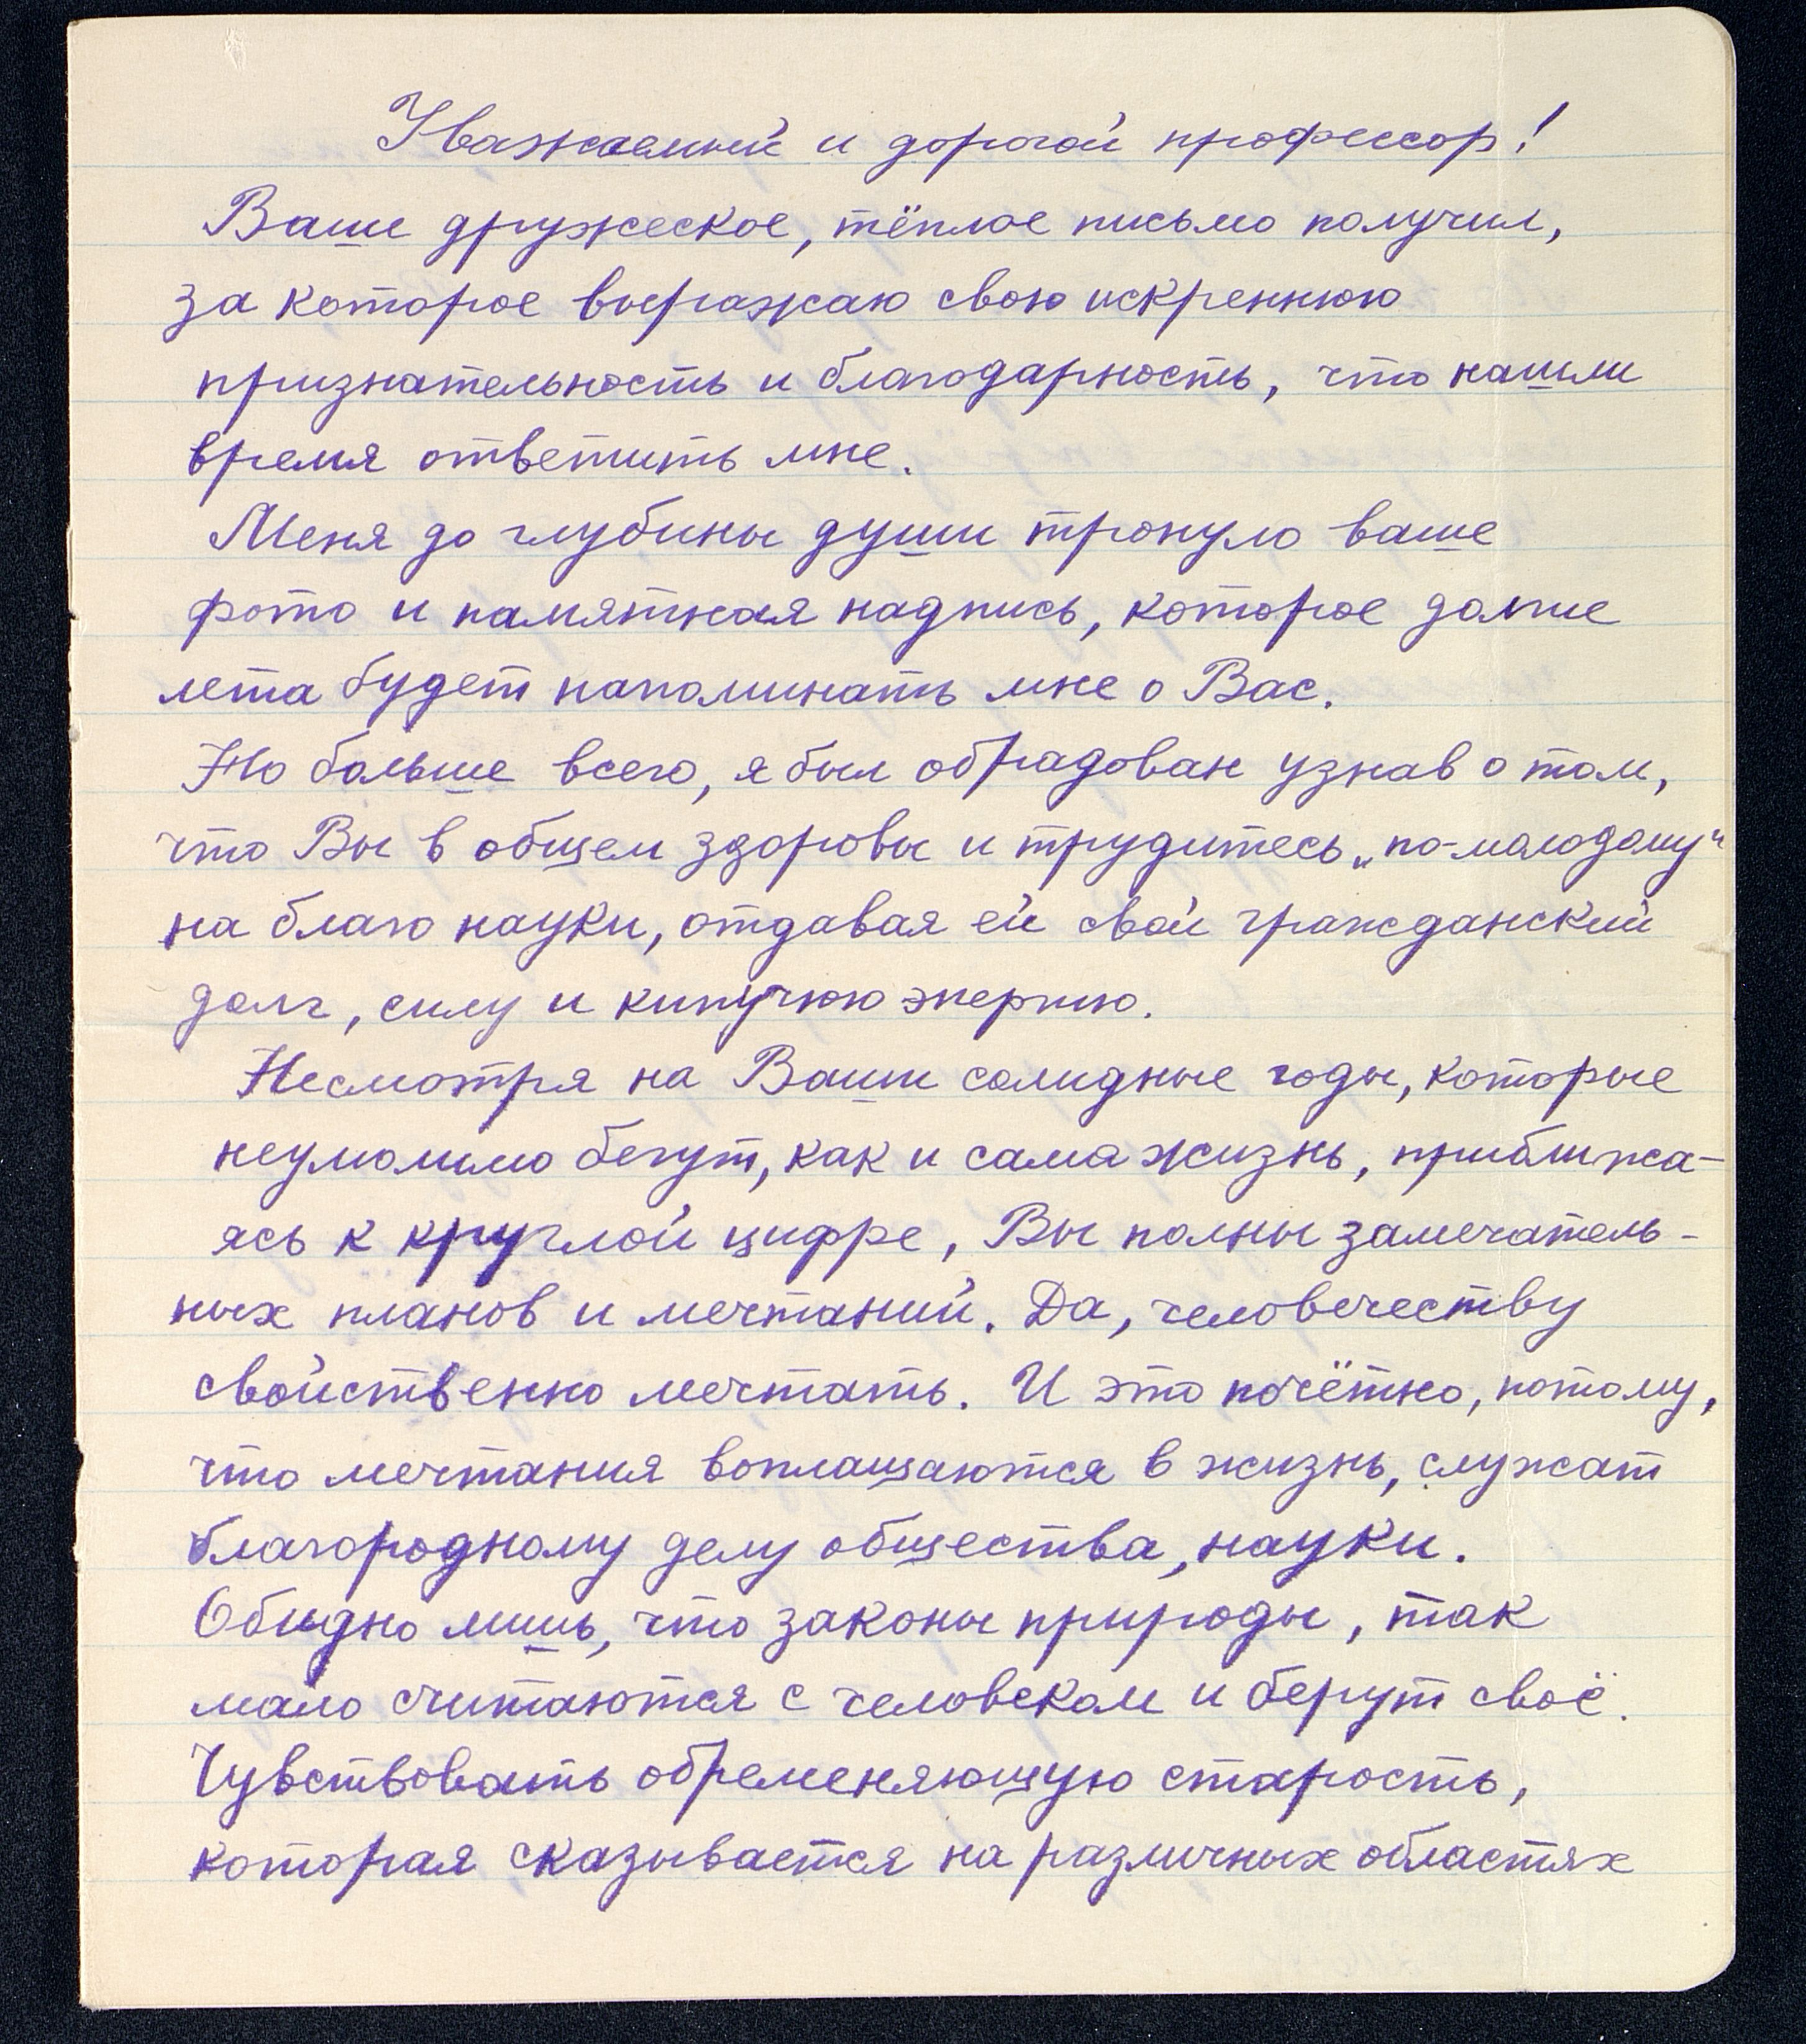 Уважаемый и дорогой профессор!
Ваше дружеское, тёплое письмо получил,
за которое выражаю свою искреннюю
признательность и благодарность, что нашли
время ответить мне.
Меня до глубины души тронуло ваше
фото и памятная надпись, которое долгие
лета будет напоминать мне о Вас.
Но больше всего, я был обрадован узнав о том,
что Вы в общем здоровы и трудитесь „по-молодому“
на благо науки, отдавая ей свой гражданский
долг, силу и кипучюю энергию.
Несмотря на Ваши солидные годы, которые
неумолимо бегут, как и сама жизнь, приближа-
ясь к круглой цифре, Вы полны замечатель-
ных планов и мечтаний. Да, человечеству
свойственно мечтать. И это почётно, потому,
что мечтания воплащаются в жизнь, служат
благородному делу общества, науки.
Обидно лишь, что законы природы, так
мало считаются с человеком и берут своё.
Чувствовать обременяющую старость,
которая сказывается на различных областях